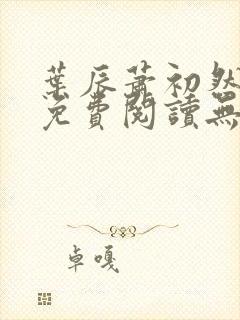 葉辰蕭初然
免費閱讀無
卓嘎